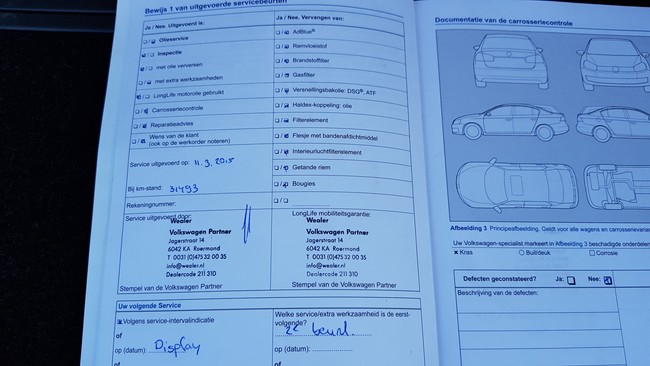 Bewijs 1 van uitgevoerde servicebeurten
Ja / Nee. Uitgevoerd is:
Olieservice
Inspectie
met olie verversen
met extra werkzaamheden
LongLife motorolie gebruikt
Carrosseriecontrole
Reparatieadvies
Wens van de klant
(ook op de werkorder noteren)
Service uitgevoerd op: 11.3.2015
Bij km-stand: 31493
Rekeningnummer:
Service uitgevoerd door:
Wealer
Volkswagen Partner
Jagerstraat 14
6042 KA Roermond
T 0031 (0)475 32 00 35
info@wealer.nl
Dealercode 211 310
Stempel van de Volkswagen Partner
Ja / Nee. Vervangen van:
AdBlue®
Remvloeistof
Brandstoffilter
Gasfilter
Versnellingsbakolie: DSG®, ATF
Haldex-koppeling: olie
Filterelement
Flesje met bandenafdichtmiddel
Interieurluchtfilterelement
Getande riem
Bougies
LongLife mobiliteitsgarantie:
Wealer
Volkswagen Partner
Jagerstraat 14
6042 KA Roermond
T 0031 (0)475 32 00 35
info@wealer.nl
Dealercode 211 310
Stempel van de Volkswagen Partner
Uw volgende Service
Volgens service-intervalindicatie
of
op (datum): Display
of
Welke service/extra werkzaamheid is de eerst-
volgende?
2e beurt
op (datum):
Documentatie van de carrosseriecontrole
Afbeelding 3 Principeafbeelding. Geldt voor alle wagens en carrosserievaria
Uw Volkswagen-specialist markeert in Afbeelding 3 beschadigde onderdelen
Kras Buil/deuk Corrosie
Defecten geconstateerd? Ja: Nee:
Beschrijving van de defecten: